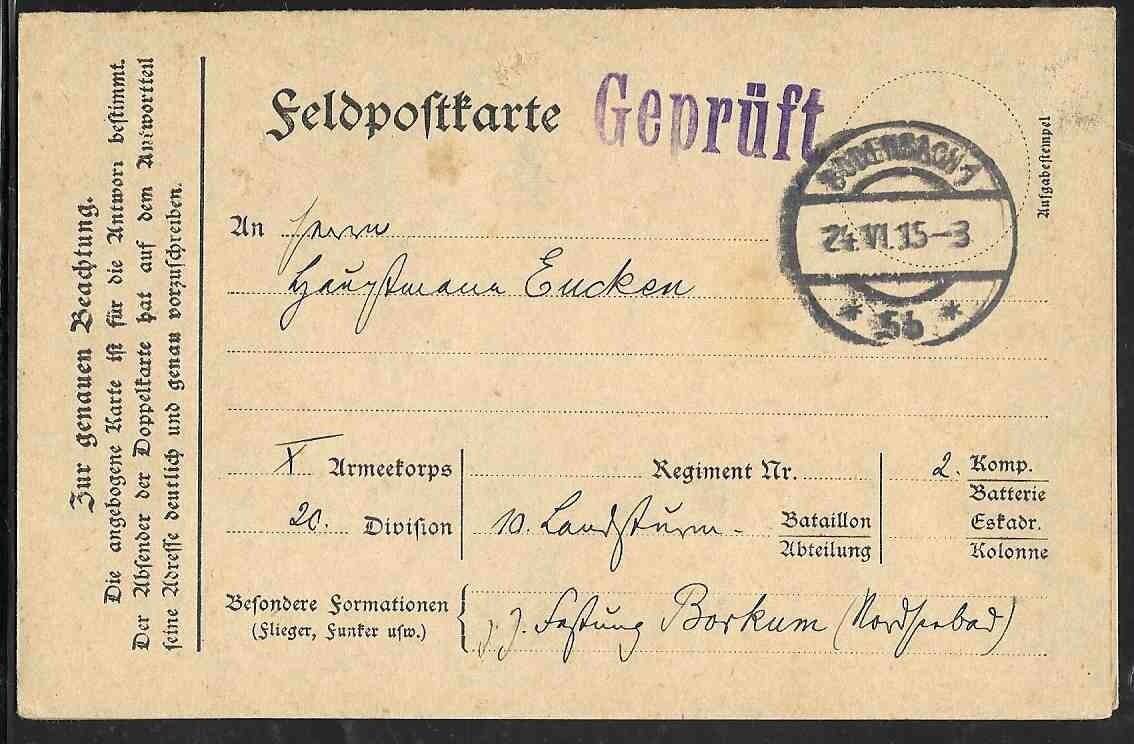 Feldpostkarte
Geprüft
Aufgabestempel
BODENBACH 1
24.VI.15-3
* 5b *
An Herrn
Hauptmann Eucken
X Armeekorps
20. Division
Regiment Nr.
10. Landsturm-Bataillon
Abteilung
2. Komp.
Batterie
Eskadr.
Kolonne
Besondere Formationen
(Flieger, Funker usw.)
z. Z. Festung Borkum (Nordseebad)
Zur genauen Beachtung.
Die angebogene Karte ist für die Antwort bestimmt.
Der Absender der Doppelkarte hat auf dem Antwortteil
seine Adresse deutlich und genau vorzuschreiben.